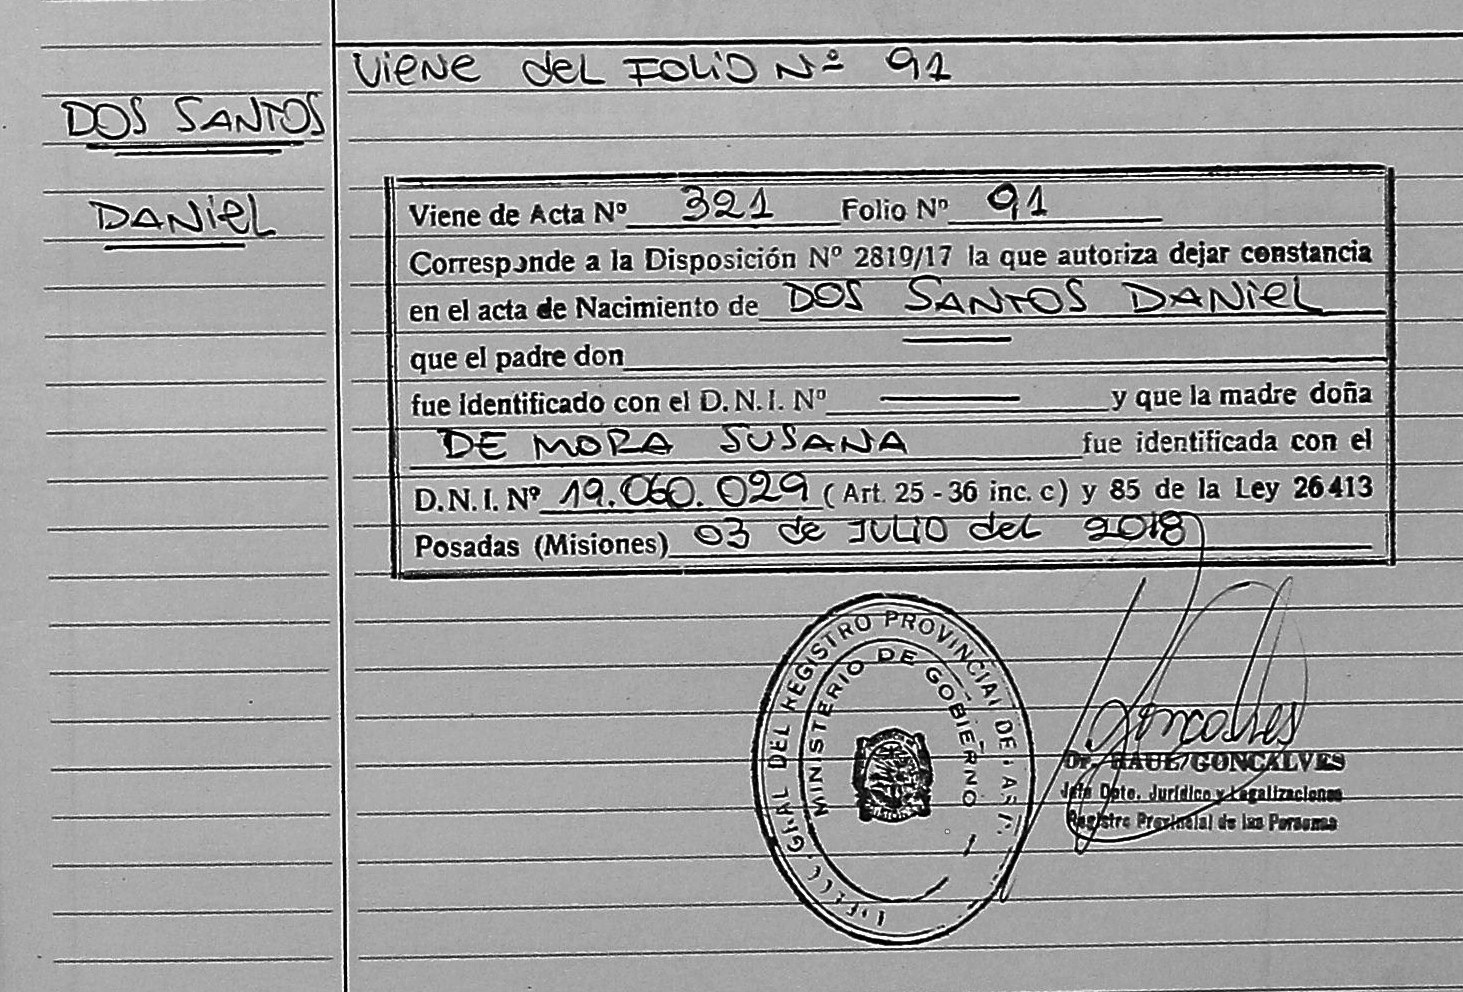 Viene del Folio Nº 91
DOS SANTOS
DANiel
Viene de Acta Nº 321 Folio Nº 91
Corresponde a la Disposición Nº 2819/17 la que autoriza dejar constancia
en el acta de Nacimiento de DOS SANTOS DANiel
que el padre don
fue identificado con el D.N.I. Nº y que la madre doña
DE MORA SUSANA fue identificada con el
D.N.I. Nº 19.060.029 (Art. 25 - 36 inc. c) y 85 de la Ley 26413
Posadas (Misiones) 03 de JULIO del 2018
GRAL DEL REGISTRO PROVINCIAL DE LAS
MINISTERIO DE GOBIERNO
MISIONES
Goncalves
Dr. RAUL GONCALVES
Jefe Dpto. Jurídico y Legalizaciones
Registro Provincial de las Personas